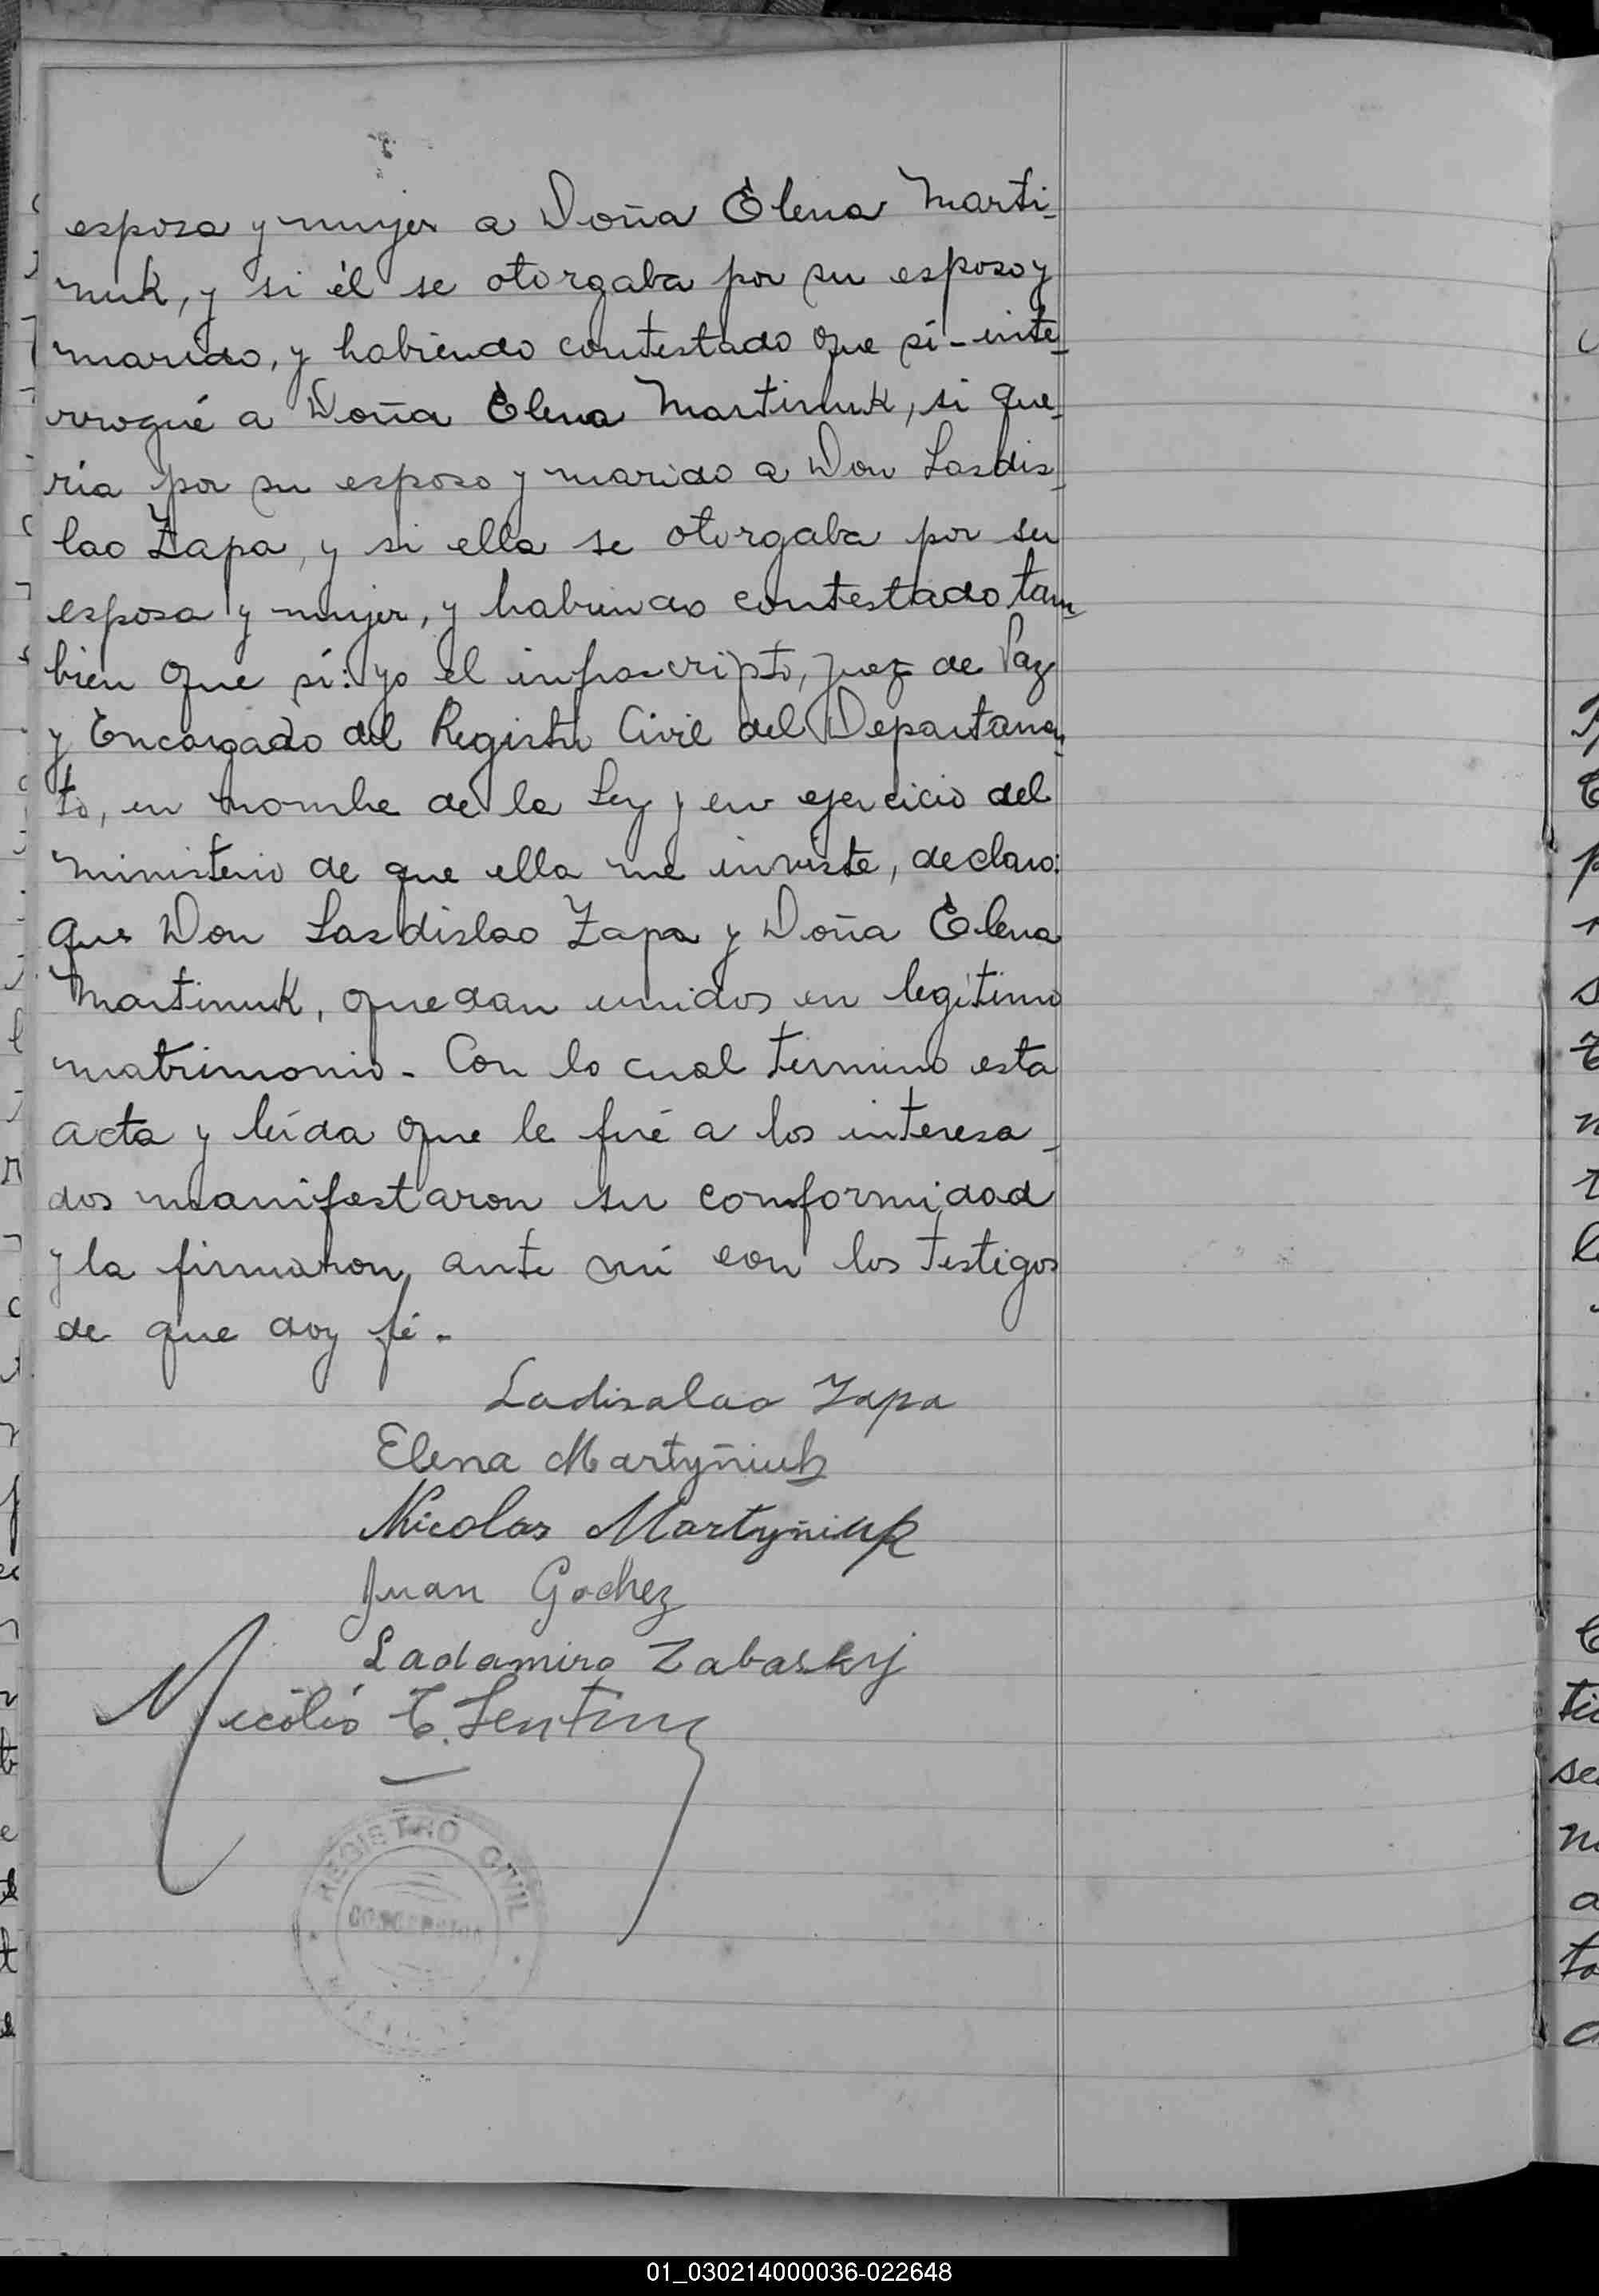 esposa y mujer a Doña Elena Marti-
nuk, y si él se otorgaba por su esposo y
marido, y habiendo contestado que sí - inte-
rrogué a Doña Elena Martinuk, si que-
ría por su esposo y marido a Don Lasdis-
lao Zapa, y si ella se otorgaba por su
esposa y mujer, y habiendo contestado tam
bien que sí: yo el infrascripto, Juez de Paz
y Encargado del Registro Civil del Departamen-
to, en nombre de la Ley y en ejercicio del
ministerio de que ella me inviste, declaro:
que Don Lasdislao Zapa y Doña Elena
Martinuk, quedan unidos en legítimo
matrimonio. - Con lo cual termino esta
acta y leída que le fué a los interesa-
dos manifestaron su conformidad
y la firmaron ante mí con los testigos
de que doy fé. -
Ladisalao Zapa
Elena Martyñiuk
Nicolas Martyñiuk
Juan Gochez
Ladamiro Zabaskyj
REGISTRO CIVIL
CONCEPCION
01_030214000036-022648